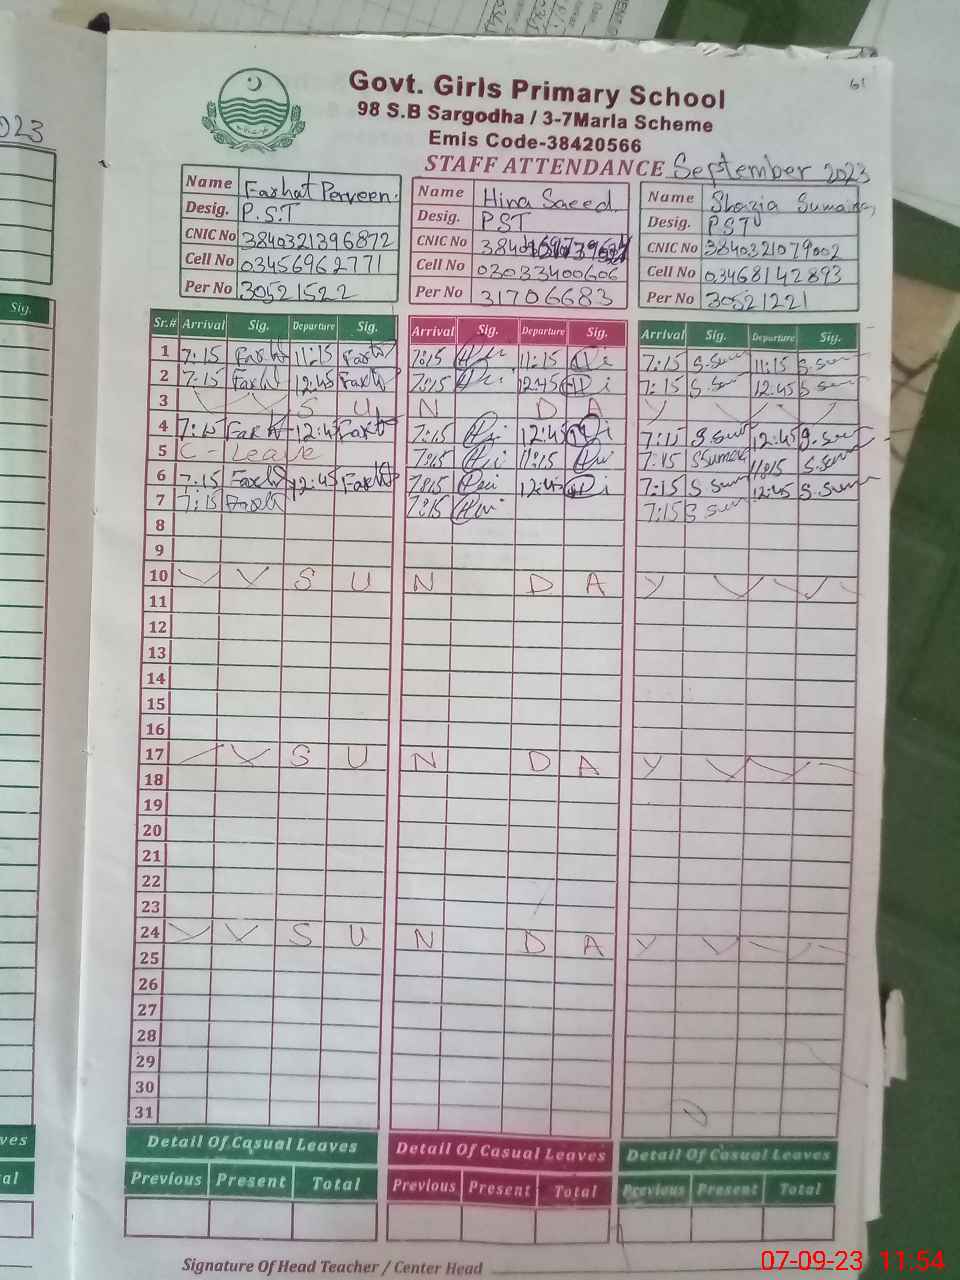 61
Govt. Girls Primary School
98 S.B Sargodha / 3-7Marla Scheme
Emis Code-38420566
STAFF ATTENDANCE September 2023
023
Name Farhat Perveen. Name Hina Saeed. Name Shazia Sumaira
Desig. P.S.T Desig. PST Desig. PST
CNIC No 3840321396872 CNIC No CNIC No 3840321079002
Cell No 03456962771 Cell No 03033400606 Cell No 03468142893
Per No 30521522 Per No 31706683 Per No 30521221
Sig.
Sr.# Arrival Sig. Departure Sig. Arrival Sig. Departure Sig. Arrival Sig. Departure Sig.
1 7:15 Farht 11:15 Farht 7:15 11:15 7:15 S.Sum 11:15 S.Sum
2 7:15 Farht 12:45 Farht 7:15 12:45 7:15 S.Sum 12:45 S.Sum
3 S U N D A Y
4 7:15 Farht 12:45 Farht 7:15 12:45 7:15 S.Sum 12:45 S.Sum
5 C - Leave 7:15 11:15 7:15 S.Sum 11:15 S.Sum
6 7:15 Farht 12:45 Farht 7:15 12:45 7:15 S Sum 12:45 S.Sum
7 7:15 Farht 7:15 7:15 S Sum
8
9
10 S U N D A Y
11
12
13
14
15
16
17 S U N D A Y
18
19
20
21
22
23
24 S U N D A Y
25
26
27
28
29
30
31
ves Detail Of Casual Leaves Detail Of Casual Leaves Detail Of Casual Leaves
al Previous Present Total Previous Present Total Previous Present Total
Signature Of Head Teacher / Center Head
07-09-23 11.54